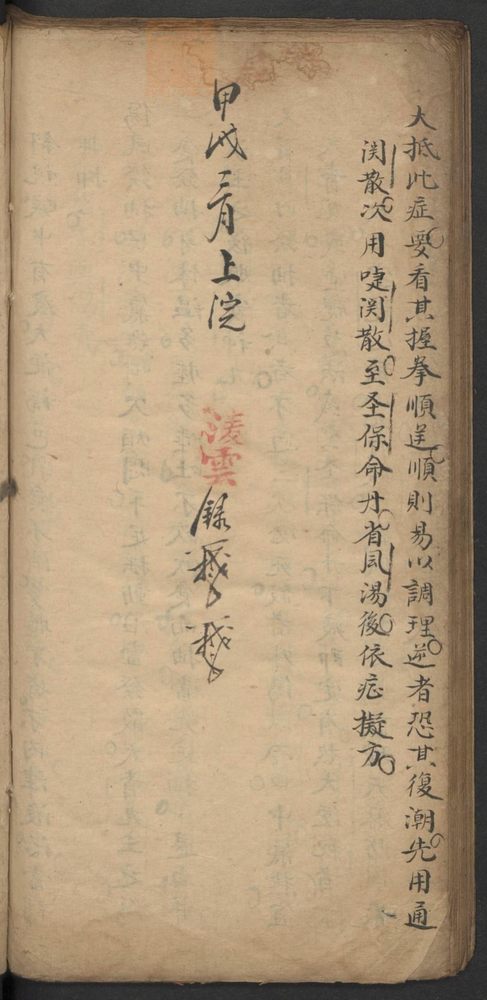 大抵此症要看其握拳順逆順則易以調理逆者恐其復潮先用通
関散次用啑関散至圣保命丹省風湯後依症擬方
甲戌二月上浣
淩雲
錄